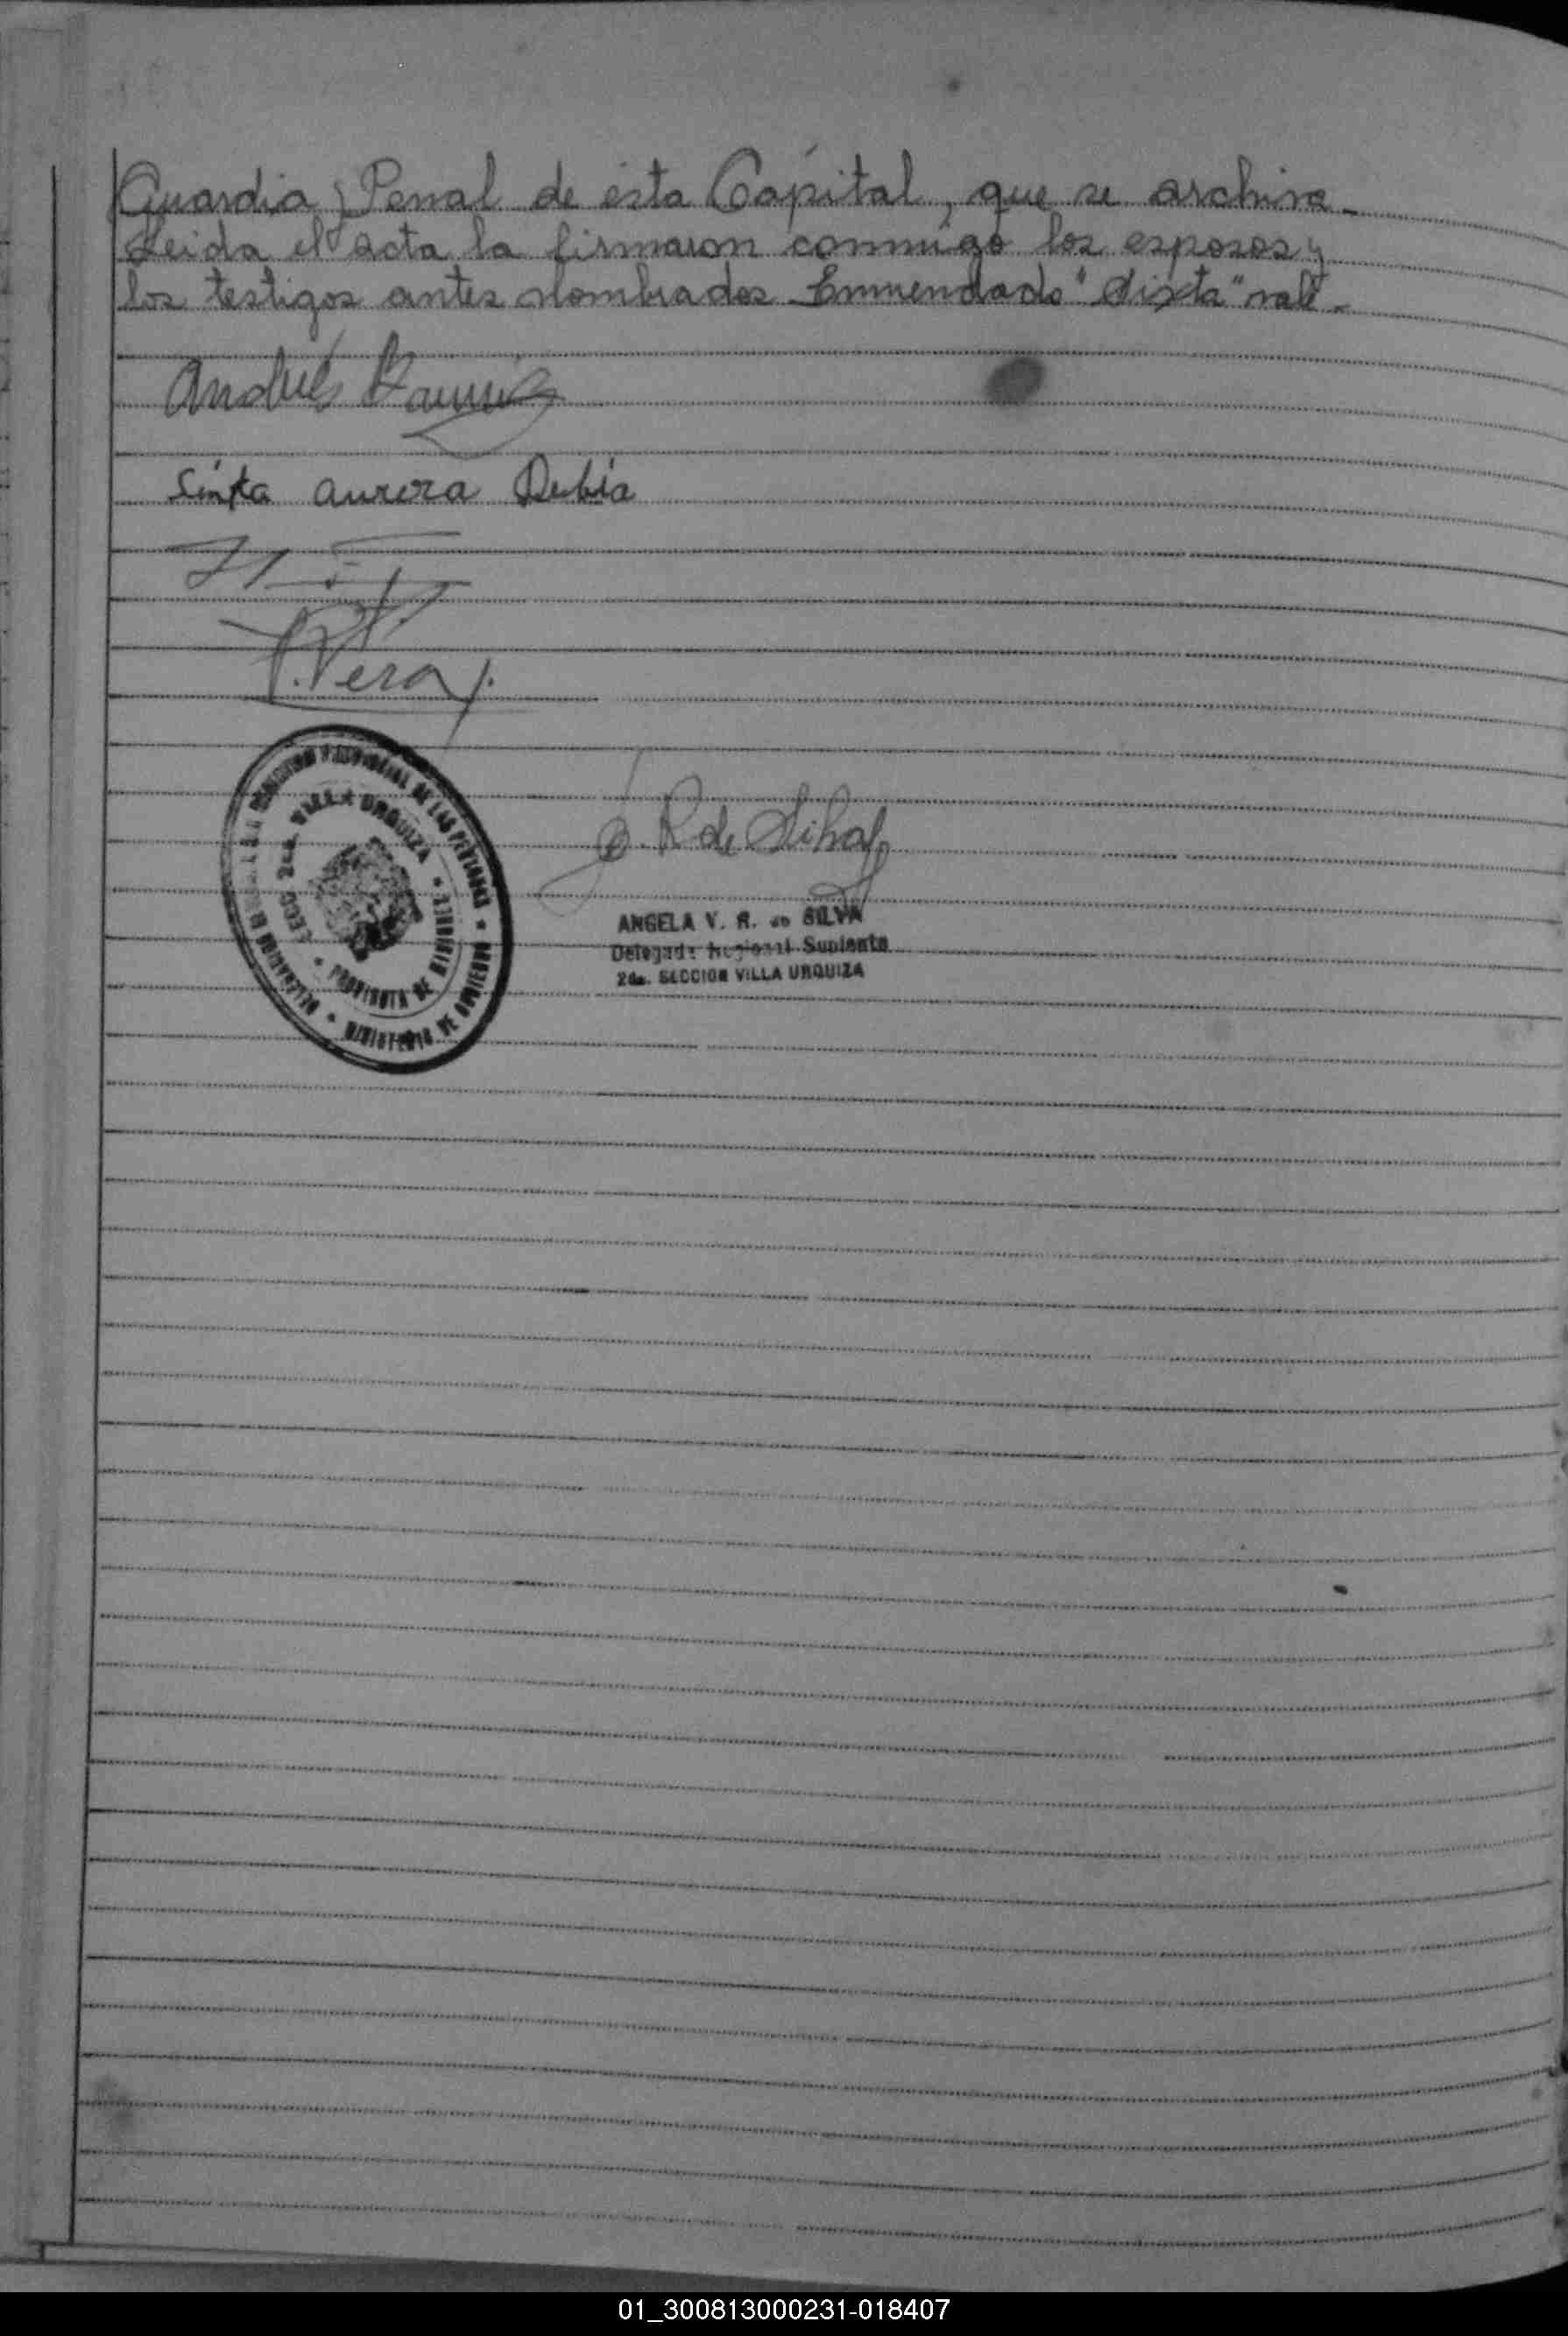 Guardia Penal de esta Cápital, que se archiva-
Leida el acta la firmaron conmigo los esposos y
los testigos antes nombrados Enmendado "Sixta" vale-
Andrés Ramirez
Sixta Aurora Debia
Vera
DIRECCION PROVINCIAL DE LAS PERSONAS * MINISTERIO DE GOBIERNO *
SECC 2da. VILLA URQUIZA * PROVINCIA DE MISIONES *
R de Silva
ANGELA V. R. de SILVA
Delegada Regional Suplente
2da. SECCION VILLA URQUIZA
01_300813000231-018407